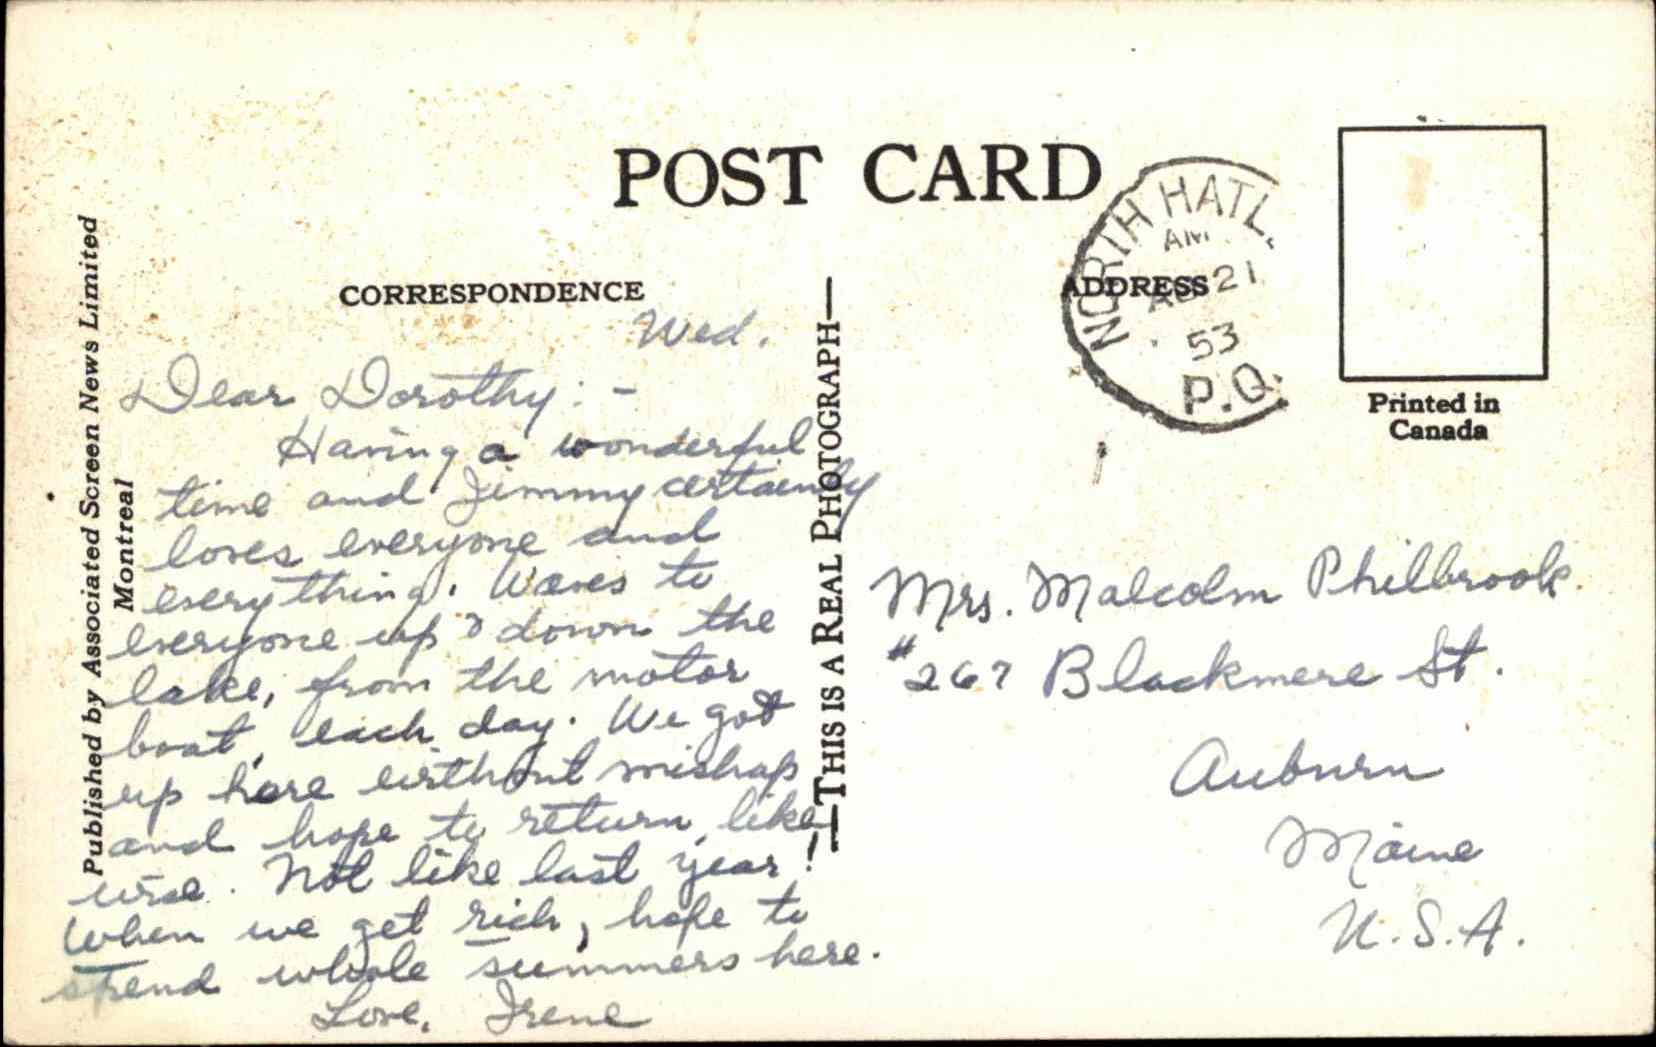 POST CARD
CORRESPONDENCE
ADDRESS
NORTH HATL.
AM
AU 21
53
P.Q.
Printed in
Canada
Published by Associated Screen News Limited
Montreal
—THIS IS A REAL PHOTOGRAPH—
Wed.
Dear Dorothy: -
Having a wonderful
time and Jimmy certainly
loves everyone and
everything. Waves to
everyone up & down the
lake, from the motor
boat, each day. We got
up here without mishap
and hope to return, like
wise. Not like last year!
When we get rich, hope to
spend whole summers here.
Love, Irene
Mrs. Malcolm Philbrook.
#267 Blackmere St.
Auburn
Maine
U.S.A.